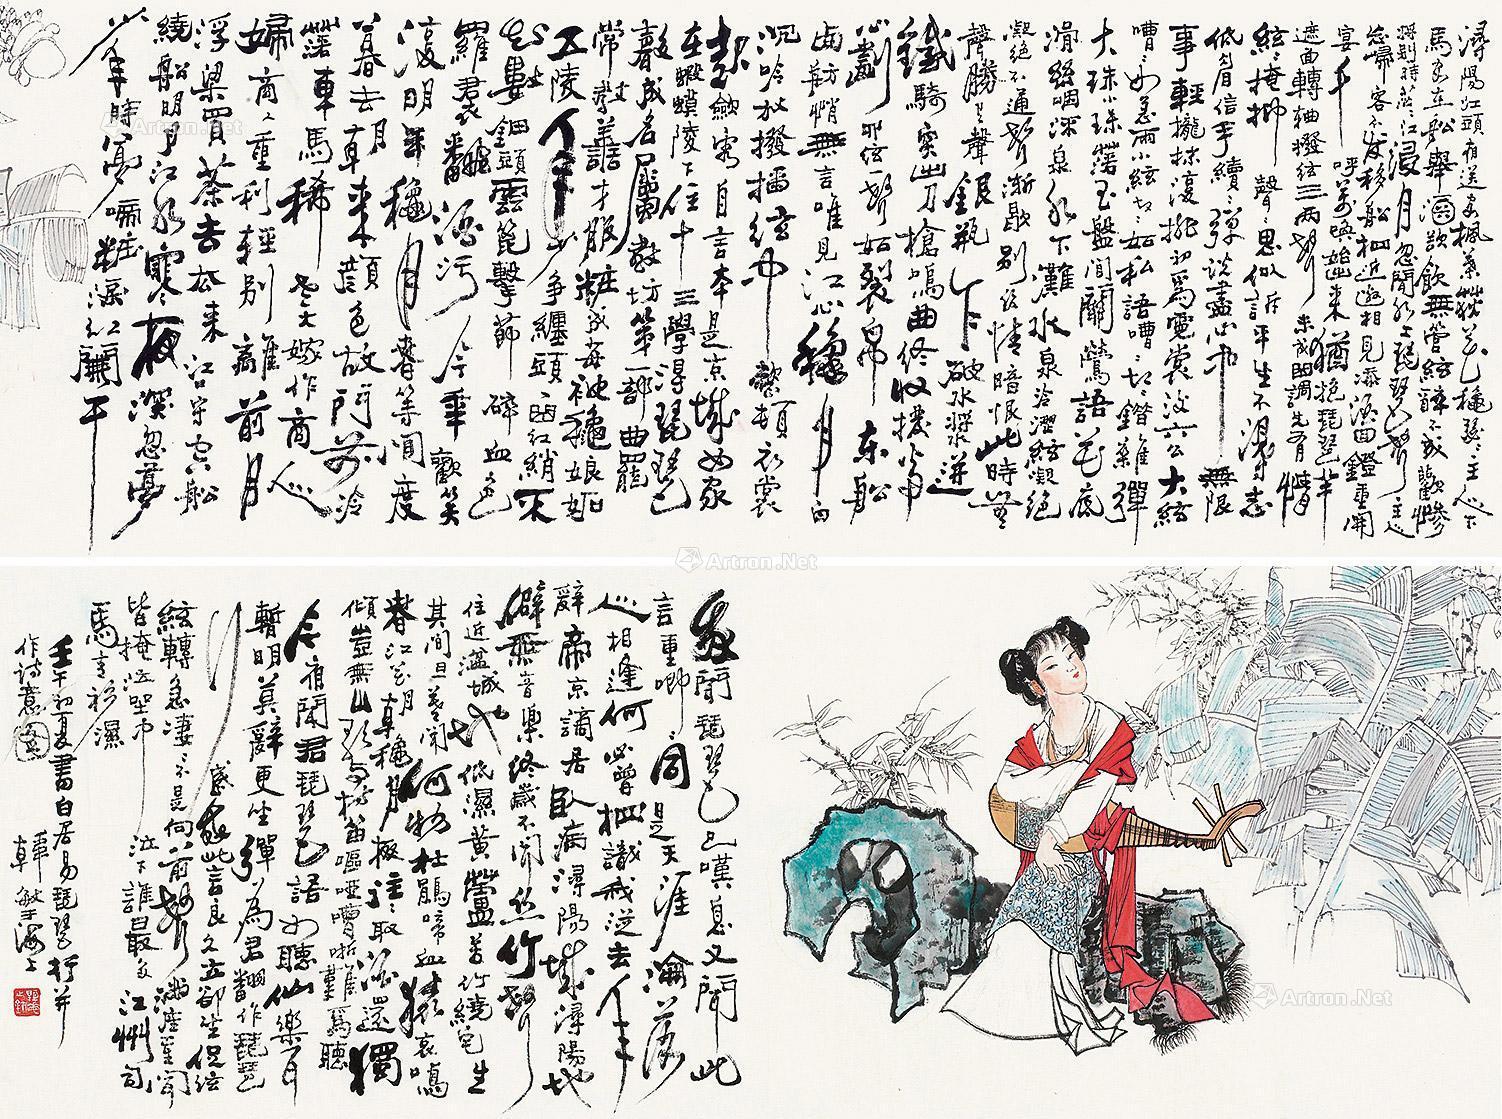 潯陽江頭夜送客楓葉荻花秋瑟瑟主人下
馬客在船舉酒欲飲無管絃醉不成歡慘
將別時茫茫江浸月忽聞水上琵琶聲主人
忘歸客不發移船相近邀相見添酒回鐙重開
宴千呼萬喚始出來猶抱琵琶半
遮面轉軸撥絃三兩聲未成曲調先有情
絃絃掩抑聲聲思似訴平生不得志
低眉信手續續彈說盡心中無限
事輕攏慢撚復挑初為霓裳後六么大絃
嘈嘈如急雨小絃切切如私語嘈嘈切切錯雜彈
大珠小珠落玉盤間關鶯語花底
滑幽咽流泉水下灘水泉冷澀絃凝絕
凝絕不通聲漸歇別有幽情暗恨此時無
聲勝有聲銀瓶乍破水漿迸
鐵騎突出刀槍鳴曲終收撥當
心劃四絃一聲如裂帛東船
西舫悄無言唯見江心秋月白
沉吟放撥插絃中整頓衣裳
起斂容自言本是京城女家
在蝦蟆陵下住十三學得琵琶
成名屬教坊第一部曲罷
常教善才服粧成每被秋娘妬
五陵年少爭纏頭一曲紅綃不
知數鈿頭雲篦擊節碎血色
羅裙翻酒污今年歡笑
復明年秋月春等閒度
暮去朝來顏色故門前冷
落車馬稀老大嫁作商人
婦商人重利輕別離前月
浮梁買茶去去來江口守空船
繞船明月江水寒夜深忽夢
少年時夢啼粧淚紅闌干
我聞琵琶已嘆息又聞此
言重唧唧同是天涯淪落
人相逢何必曾相識我從去年
辭帝京謫居臥病潯陽城潯陽地
僻無音樂終歲不聞絲竹聲
住近湓城地低濕黃蘆苦竹繞宅生
其間旦暮聞何物杜鵑啼血猿哀鳴
春江花朝秋月夜往往取酒還獨
傾豈無山歌與村笛嘔啞嘲哳難為聽
今宵聞君琵琶語如聽仙樂耳
暫明莫辭更坐彈一曲為君翻作琵琶
行感我此言良久立卻坐促絃
絃轉急淒淒不是向前聲滿座重聞
皆掩泣座中泣下誰最多江州司
馬青衫濕
壬午初夏書白居易琵琶行并
作詩意圖韓敏于海上
Artron.Net
Artron.Net
Artron.Net
Artron.Net
Artron.Net